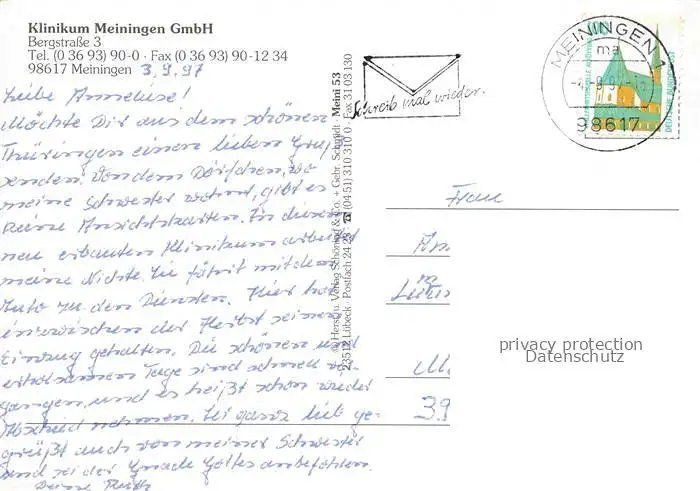 Klinikum Meiningen GmbH
Bergstraße 3
Tel. (0 36 93) 90-0 · Fax (0 36 93) 90-12 34
98617 Meiningen 3.9.97
Liebe Anneliese!
Möchte Dir aus dem schönen
Thüringen einen lieben Gruß
senden. Von dem Dörfchen, wo
meine Schwester wohnt, gibt es
keine Ansichtskarten. In diesem
neu erbauten Klinikum arbeitet
meine Nichte. Sie fährt mit dem
Auto zu den Diensten. Hier hat
inzwischen der Herbst seinen
Einzug gehalten. Die schönen und
erholsamen Tage sind schnell ver-
gangen, und es heißt schon wieder
Abschied nehmen. Sei ganz lieb ge-
grüßt auch von meiner Schwester
und sei der Gnade Gottes anbefohlen.
Deine Ruth
© Herstou. Verlag Schöning & Co. + Gebr. Schmidt · Meini 53
23512 Lübeck · Postfach 24 23 · ☎ (04 51) 310 310 0 · Fax 31 03 130
Schreib mal wieder.
MEININGEN 1
ma
98617
DEUTSCHE BUNDESPOST
Frau
An
M
39
privacy protection
Datenschutz